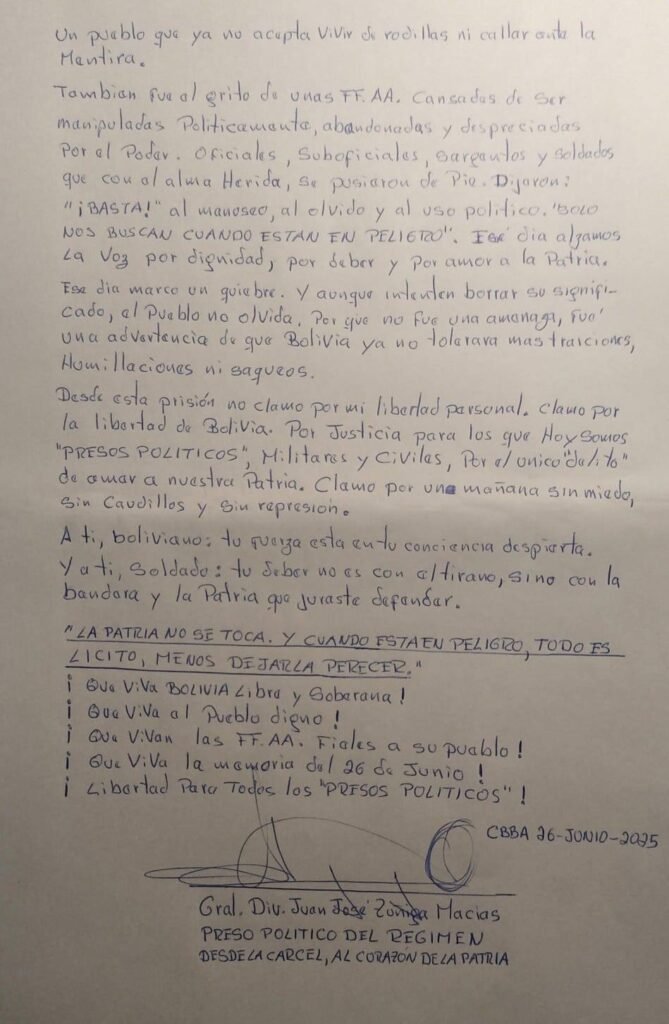 Un pueblo que ya no acepta vivir de rodillas ni callar ante la
Mentira.
Tambien fue el grito de unas FF.AA. Cansadas de ser
manipuladas Politicamente, abandonadas y despreciadas
Por el Poder. Oficiales, Suboficiales, Sargentos y Soldados
que con el alma Herida, se pusieron de Pie. Dijeron:
"¡BASTA!" al manoseo, al olvido y al uso politico. "SOLO
NOS BUSCAN CUANDO ESTAN EN PELIGRO". Ese dia alzamos
La Voz por dignidad, por deber y por amor a la Patria.
Ese dia marco un quiebre. Y aunque intenten borrar su signifi-
cado, el Pueblo no olvida. Por que no fue una amenaza, fué
una advertencia de que Bolivia ya no tolerava mas traiciones,
Humillaciones ni saqueos.
Desde esta prisión no clamo por mi libertad personal. Clamo por
la libertad de Bolivia. Por Justicia para los que Hoy Somos
"PRESOS POLITICOS", Militares y Civiles, Por el unico "delito"
de amar a nuestra Patria. Clamo por una mañana sin miedo,
Sin Caudillos y Sin represión.
A ti, boliviano: tu fuerza esta en tu conciencia despierta.
Y a ti, Soldado: tu deber no es con el tirano, Sino con la
bandera y la Patria que juraste defender.
"LA PATRIA NO SE TOCA. Y CUANDO ESTA EN PELIGRO, TODO ES
LICITO, MENOS DEJARLA PERECER."
¡ Que ViVa BOLIVIA Libre y Soberana !
¡ Que ViVa el Pueblo digno !
¡ Que ViVan las FF.AA. Fieles a su pueblo !
¡ Que ViVa la memoria del 26 de Junio !
¡ Libertad Para Todos los "PRESOS POLITICOS" !
CBBA 26-JUNIO-2025
Gral. Div. Juan José Zúñiga Macias
PRESO POLITICO DEL REGIMEN
DESDE LA CARCEL, AL CORAZÓN DE LA PATRIA